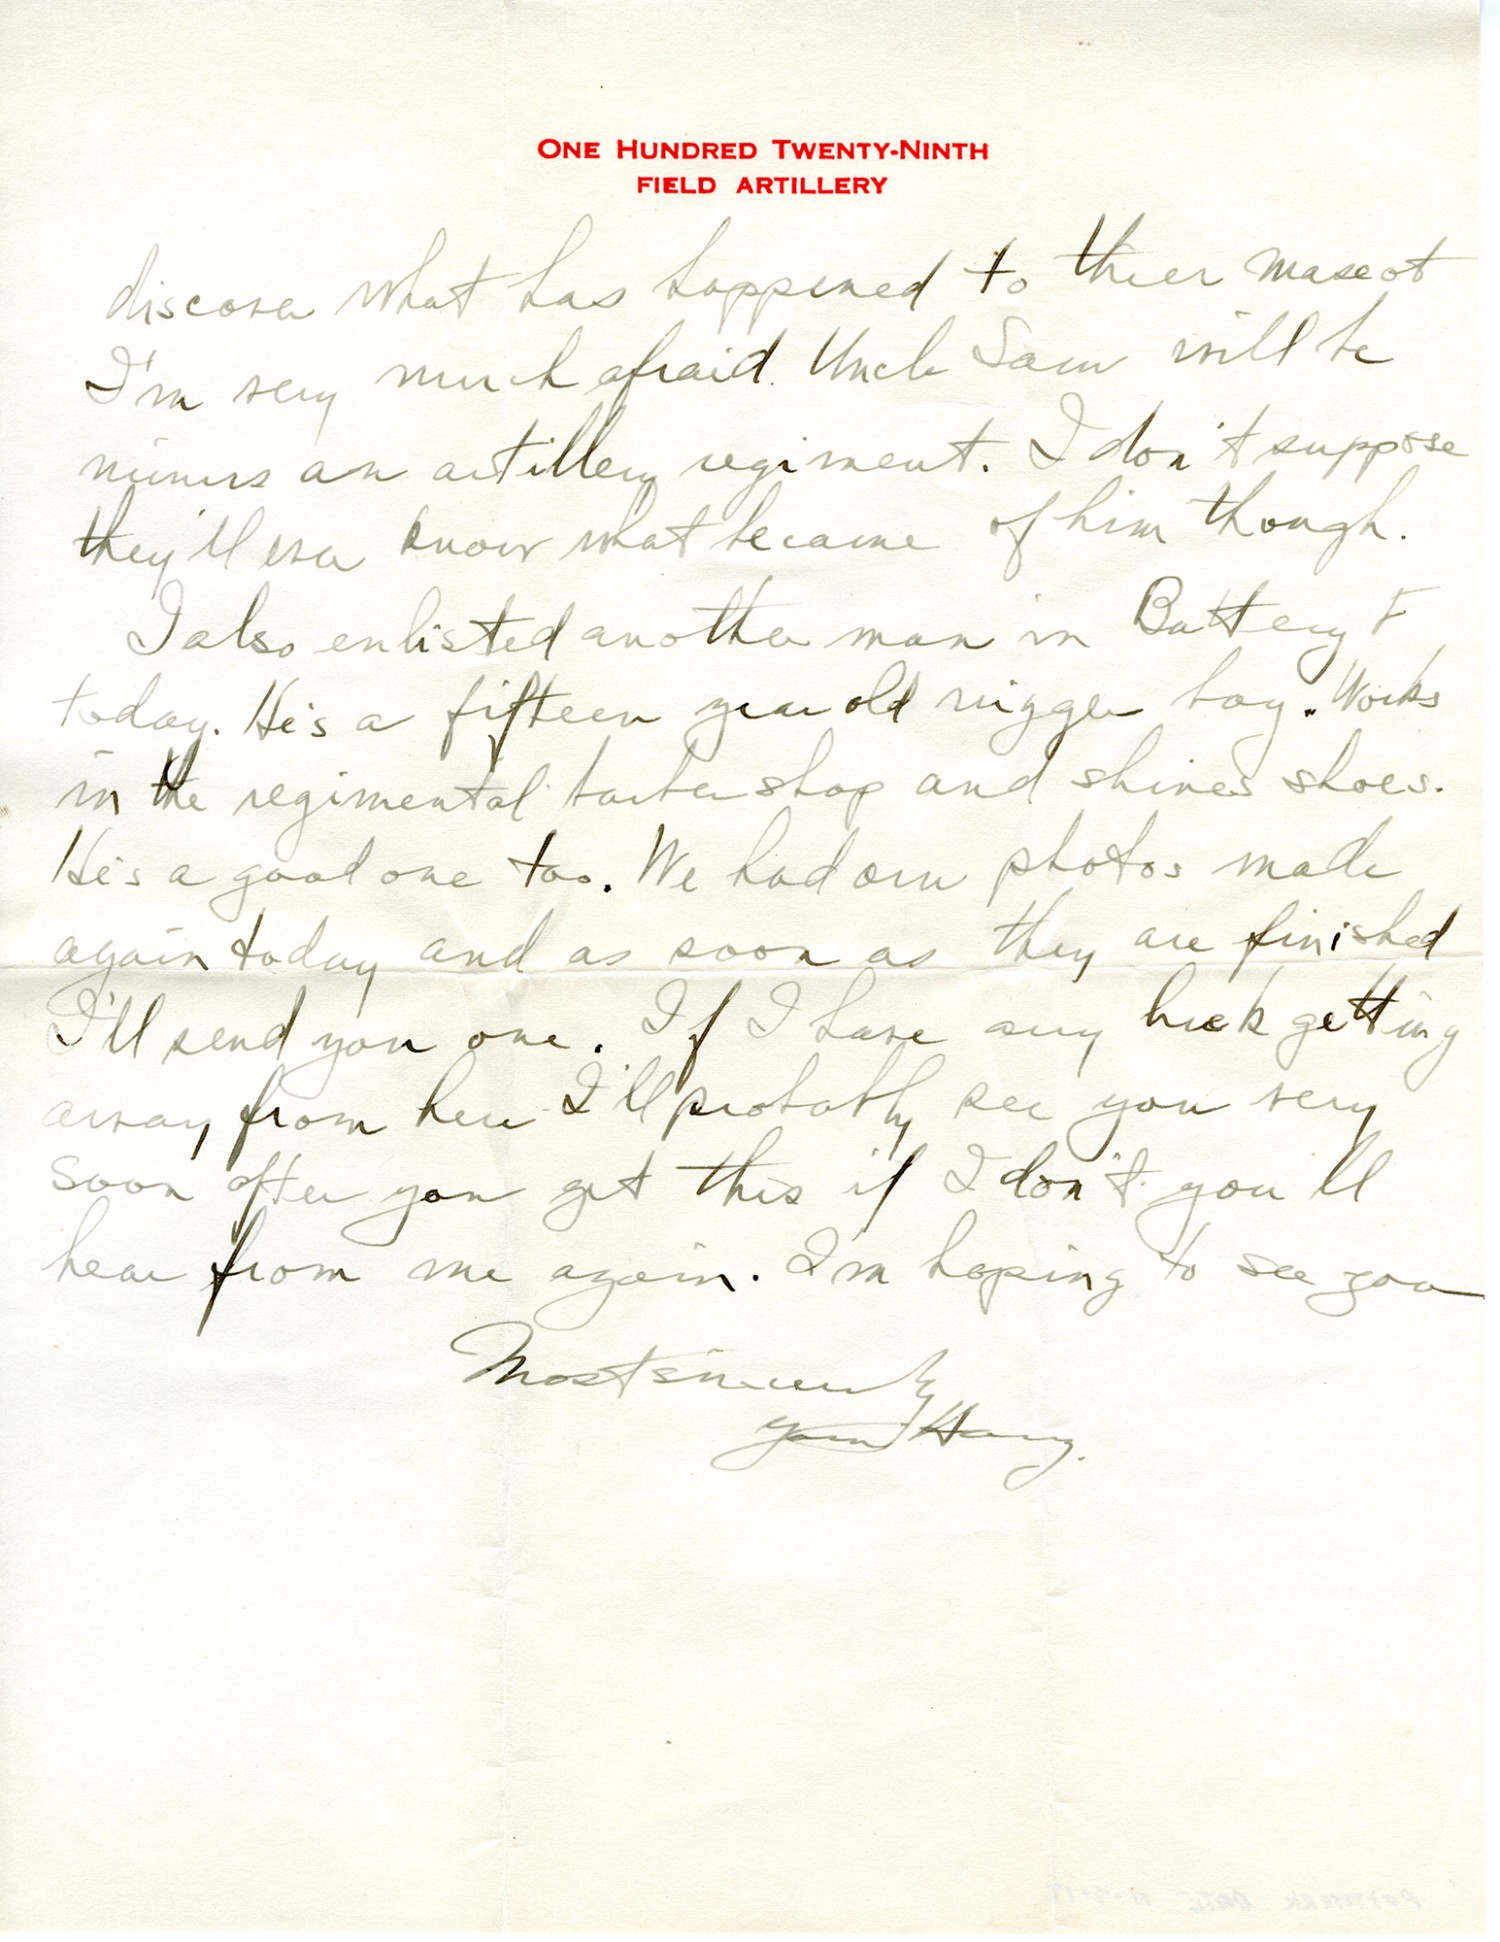 ONE HUNDRED TWENTY-NINTH
FIELD ARTILLERY
discover what has happened to thier mascot
I'm very much afraid Uncle Sam will be
minus an artillery regiment. I don't suppose
they'll ever know what became of him though.
I also enlisted another man in Battery F
today. He's a fifteen year old nigger boy. Works
in the regimental barber shop and shines shoes.
He's a good one too. We had our photos made
again today and as soon as they are finished
I'll send you one. If I have any luck getting
away from here I'll probably see you very
soon after you get this if I don't you'll
hear from me again. I'm hoping to see you
Most sincerely
Your Harry.